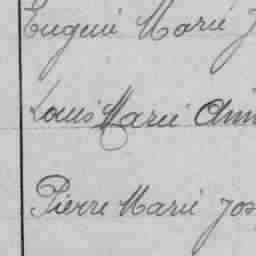 Eugène Marie J
Louis Marie Ann
Pierre Marie Jos